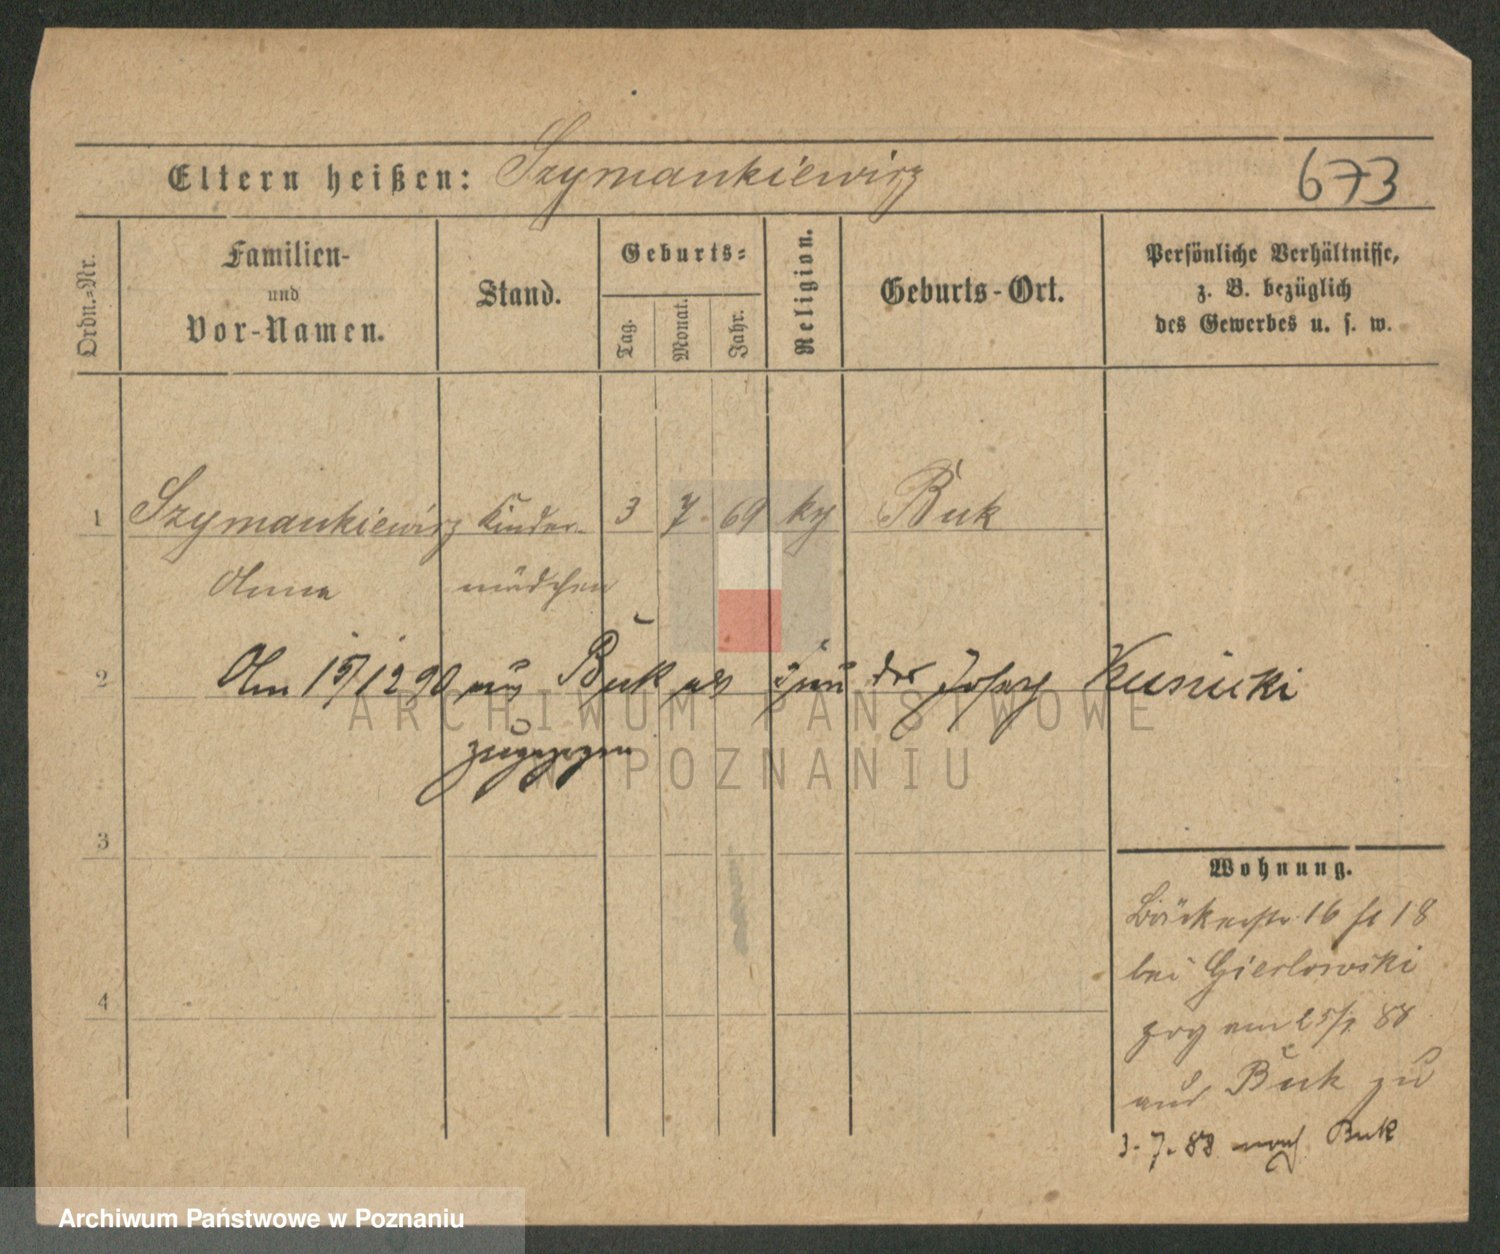 Eltern heißen: Szymankiewicz 673
Ordn.-Nr.
Familien-
und
Vor-Namen.
Stand.
Geburts-
Tag.
Monat.
Jahr.
Religion.
Geburts-Ort.
Persönliche Verhältnisse,
z. B. bezüglich
des Gewerbes u. s. w.
1 Szymankiewicz Kinder- 3 7 69 ky Buk
Anna mädchen
2
Am 15/12 90 aus Buk als Frau des Josef Kusnicki
zugezogen
3
4
Wohnung.
Bäckerstr. 16 18
bei Gierlowski
zog am 25/ 88
aus Buk zu
3. 7. 88 nach Buk
ARCHIWUM PAŃSTWOWE
W POZNANIU
Archiwum Państwowe w Poznaniu